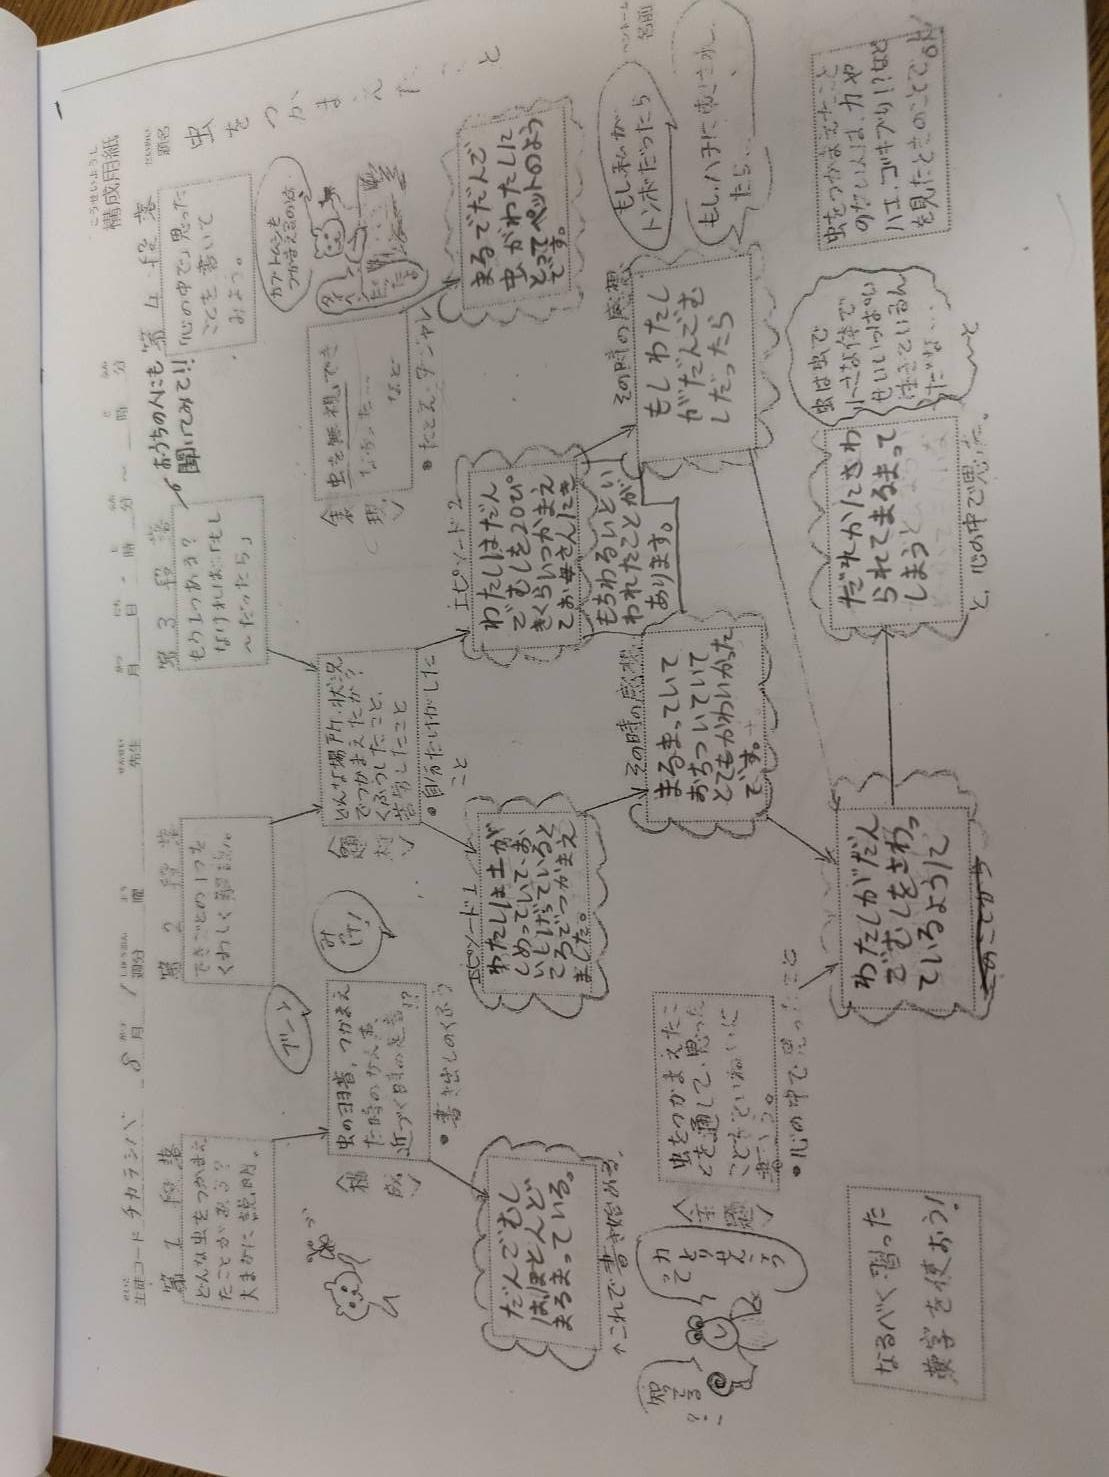 こうせいようし
構成用紙
題名
虫をつかまえたこと
生徒コード チカラシバ 8月 1週分 曜 先生 月 日 時 分 ～ 時 分
ペンネーム
名前
第1段落
どんな虫をつかまえ
たことがある？
大まかに説明。
第2段落
できごとの1つを
くわしく解説。
第3段落
もう1つある？
なければ「もし
～だったら」
おうちの人にも
聞いてみて!!
第4段落
「心の中で」思った
ことを書いて
みよう。
ブーン
虫のようす、つかまえ
た時のかん声、
近づく時の足音!?
・書き出しのくふう
だんごむし
はほとんど
まるまっている。
↑これで書き始める。
みっけ!
〈題材〉
どんな場所、状況
でつかまえたか？
くふうしたこと、
苦労したこと
・自分だけがした
こと
エピソード1
わたしは土が
しめっていて、お
いしげっていると
ころでつかまえ
ました。
その時の感想
まるまっていて
おちついていて
とてもかわいかった
です。
エピソード2
わたしはだん
ごむしを20ぴ
きくらいつかまえ
てお母さんにき
もちわるいとい
われたことが
あります。
その時の感想
もしわたし
がだんごむ
しだったら
〈表現〉
虫を無視でき
なかった……
など
・たとえ、ダジャレ
カブトムシも
つかまえるのは、
まるでだんご
虫がわたしに
とってペットのよう
です。
もし私が
トンボだったら
もし、ハチに
たら…
〈主題〉
虫をつかまえたこ
とを通して、思った
ことをていねいに
・心の中で思ったこと
わたしがだん
ごむしをさわっ
ているようにて
このことから
だれかにさわ
られてまるまって
しまうと
と、心の中で思った。
虫は虫で
小さな体で
せいいっぱい
生きているん
だな…
と
虫をつかまえたこと
のない人は、カや
ハエ、ゴキブリ!?など
を見たときのことでOK
なるべく習った
漢字を使おう!